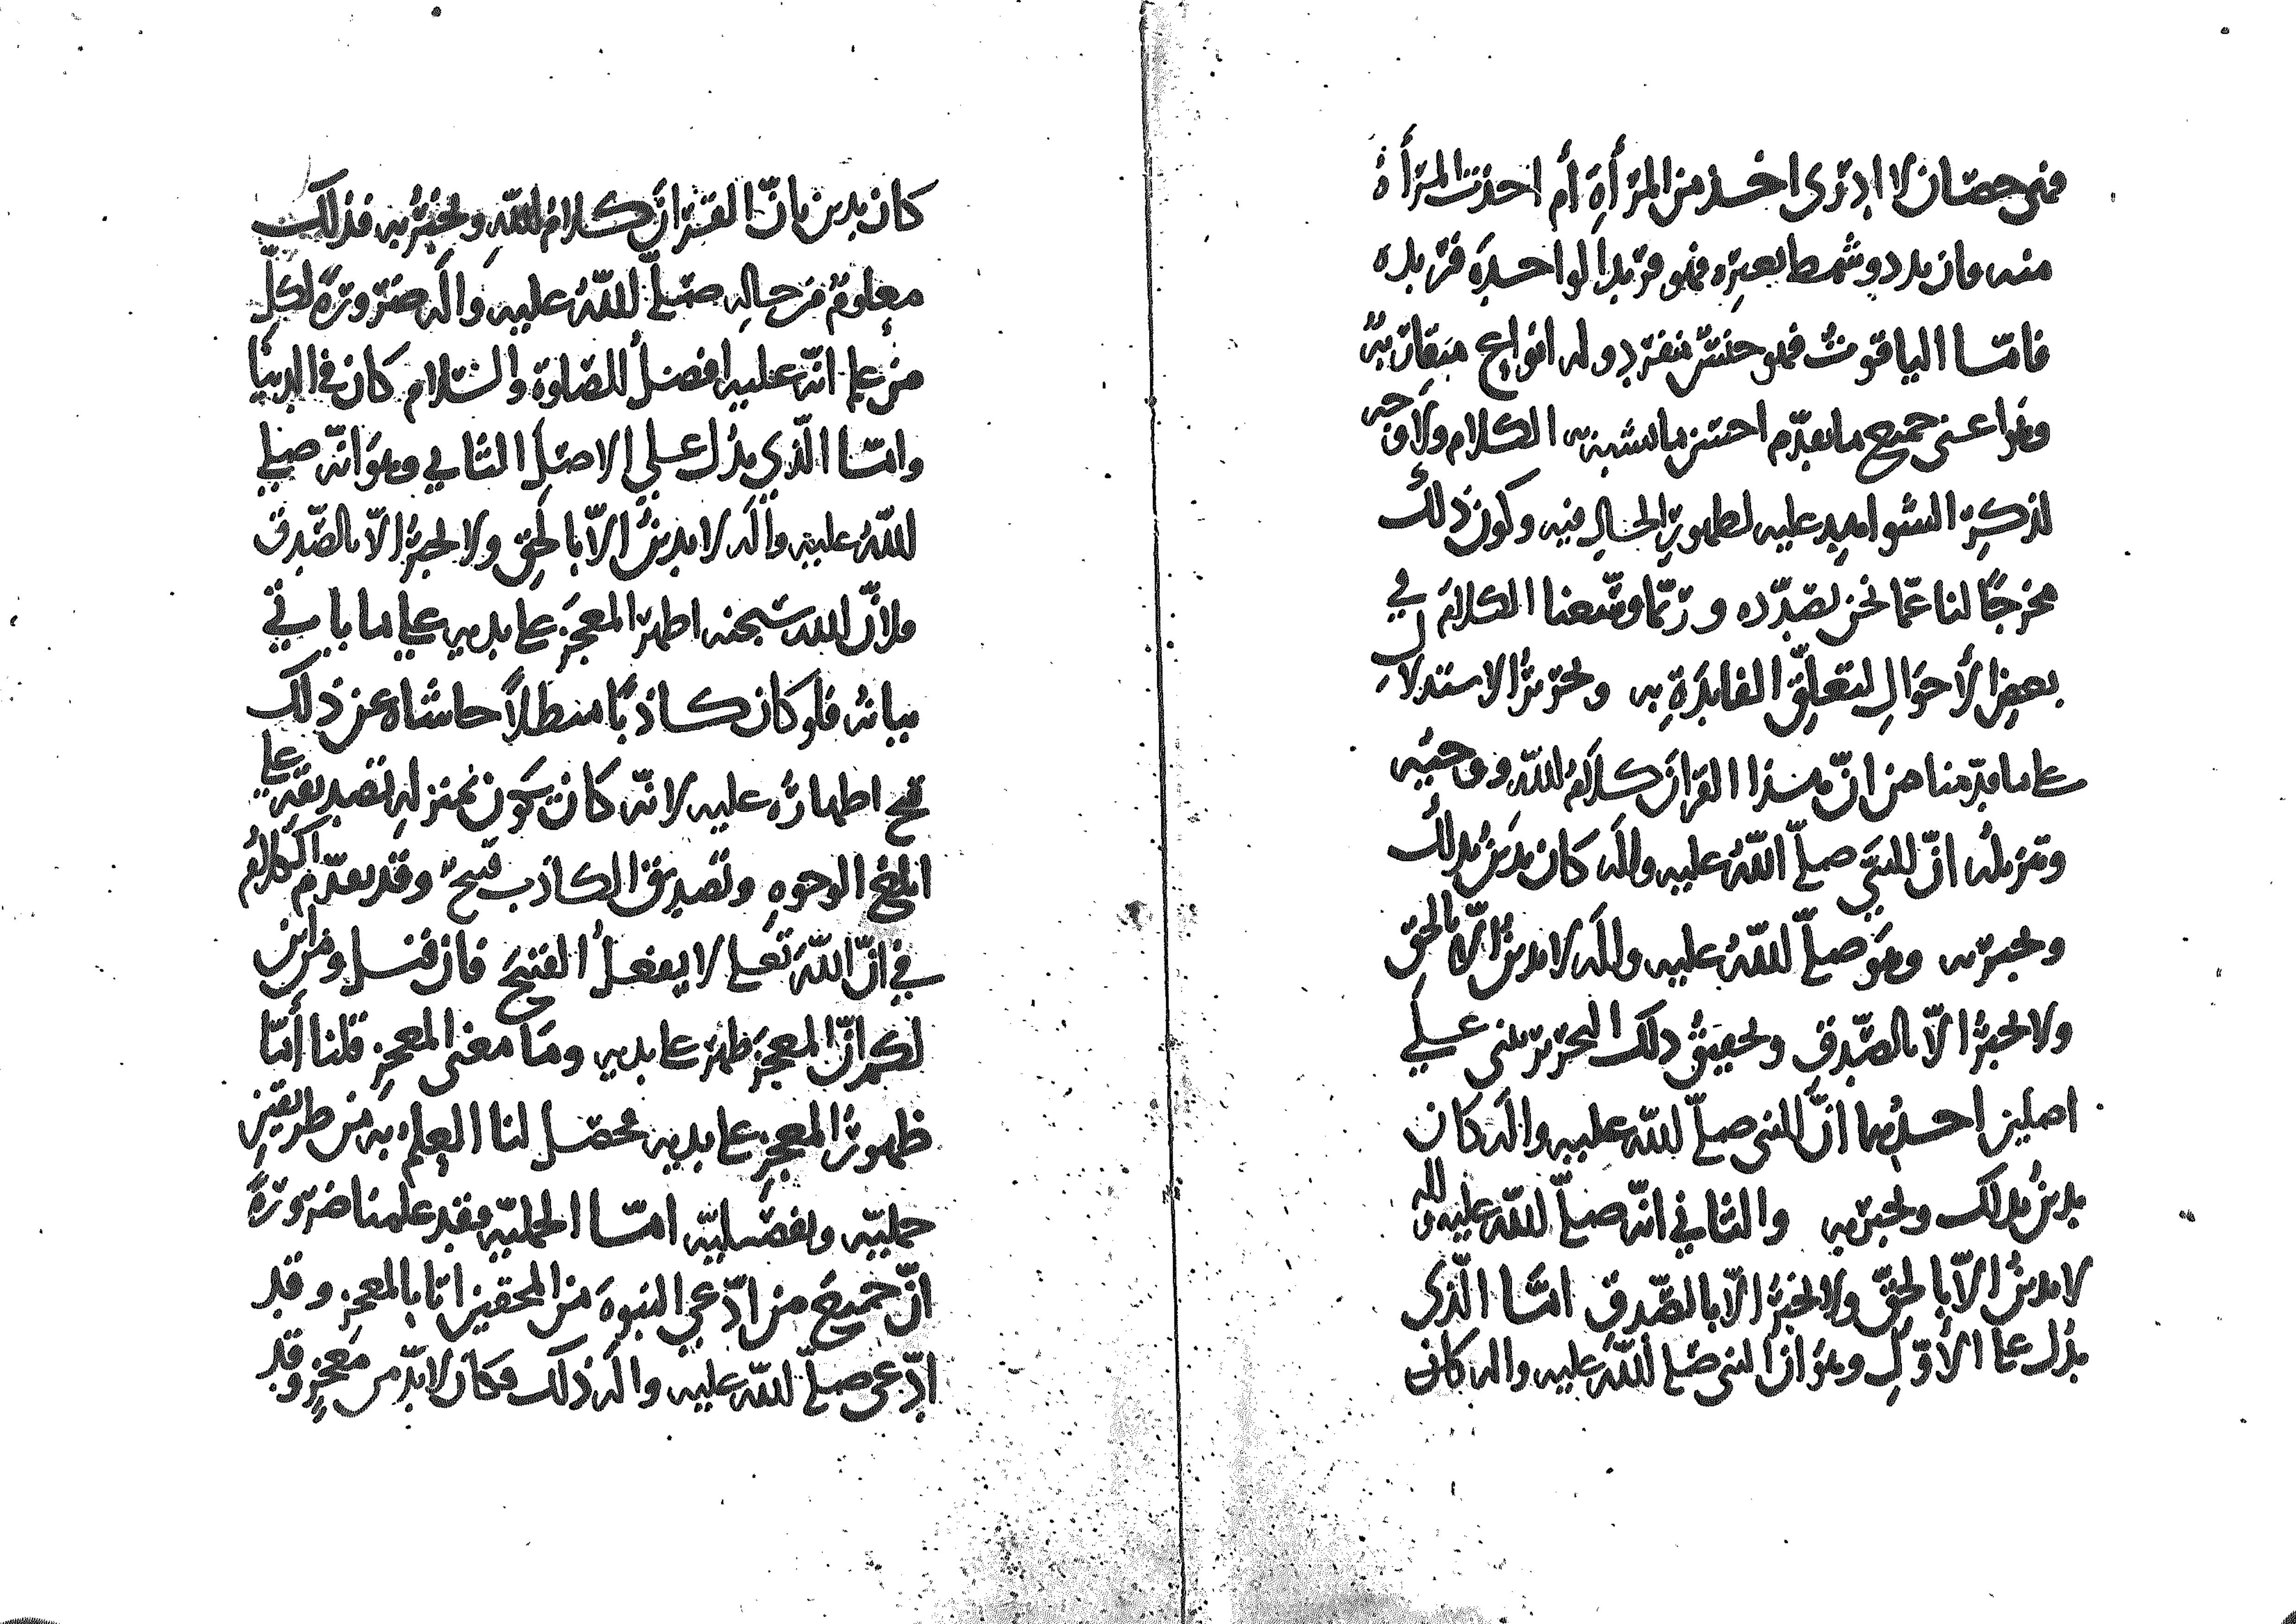 فهي حصان لا ادرى اخذ من المرأة أم اخذت المرأة
منه وان يدد وشمط بعره فهو فريد الواحدة فريده
فامّا الياقوت فهو جنس منفرد وله انواع متقاربة
وهو اعنى جميع ما تقدّم احسن ما يشبه به الكلام ولا وجه
لذكر الشواهد عليه لظهور الحال فيه وكون ذلك
مخرجًا لنا عمّا نحن بصدده وربّما وسّعنا الكلام في
بعض الأحوال لتعلّق الفايدة به وتحرير الاستدلال
على ما قدّمنا من انّ هذا القرآن كلام الله ووحيه
وتنزيله انّ النبي صلّى الله عليه واله كان يدين بذلك
ويخبر به وهو صلّى الله عليه واله لا يدين الّا بالحق
ولا يخبر الّا بالصّدق وتحقيق ذلك التحرير يبنى على
اصلين احدهما انّ النبي صلّى الله عليه واله كان
يدين بذلك ويخبر به والثاني انّه صلّى الله عليه واله
لا يدين الّا بالحقّ ولا يخبر الّا بالصّدق امّا الّذى
يدل على الأوّل وهو ان النبي صلى الله عليه واله كان
كان يدين بانّ القرآن كلام الله ويخبر به فذلك
معلوم من حاله صلّى الله عليه واله ضرورة لكلّ
من علم انّه عليه افضل الصلوة والسّلام كان في الدنيا
وامّا الّذي يدل على الاصل الثاني وهو انّه صلى
الله عليه واله لا يدين الّا بالحق ولا يخبر الّا بالصّدق
فلانّ الله سبحنه اظهر المعجز على يديه على ما ياتي
بيانه فلو كان كاذبًا مبطلًا حاشاه عن ذلك
قبح اظهاره عليه لانّه كان يكون بمنزلة تصديقه على
ابلغ الوجوه وتصديق الكاذب قبيح وقد تقدّم الكلام
في انّ الله تعلى لا يفعل القبيح فان قيل ومن اين
لكم انّ المعجز ظهر على يديه وما معنى المعجز قلنا أمّا
ظهور المعجز على يديه محصل لنا العلم به من طريقين
جمليّه وتفصيليّه امّا الجمليّه فقد علمنا ضرورة
انّ جميع من ادّعى النبوة من المحقين اتا بالمعجز وقد
ادّعى صلّى الله عليه واله ذلك فكان لا بدّ من معجز وقد